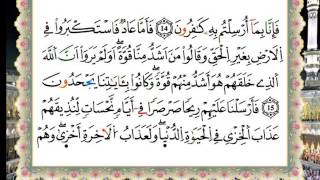 فَإِنَّا بِمَا أُرْسِلْتُم بِهِۦ كَٰفِرُونَ 14 فَأَمَّا عَادٌ فَاسْتَكْبَرُوا۟ فِي
اِ۬لْأَرْضِ بِغَيْرِ اِ۬لْحَقِّ وَقَالُوا۟ مَنْ أَشَدُّ مِنَّا قُوَّةً أَوَلَمْ يَرَوْا۟ أَنَّ اَ۬للَّهَ
اَ۬لذِے خَلَقَهُمْ هُوَ أَشَدُّ مِنْهُمْ قُوَّةً وَكَانُوا۟ بِـَٔايَٰتِنَا يَجْحَدُونَ
15 فَأَرْسَلْنَا عَلَيْهِمْ رِيحًا صَرْصَرًا فِي أَيَّامٍ نَّحْسَاتٍ لِّنُذِيقَهُمْ
عَذَابَ اَ۬لْخِزْيِ فِي اِ۬لْحَيَوٰةِ اِ۬لدُّنْيَا وَلَعَذَابُ اُ۬لْأَخِرَةِ أَخْزَىٰ وَهُمْ